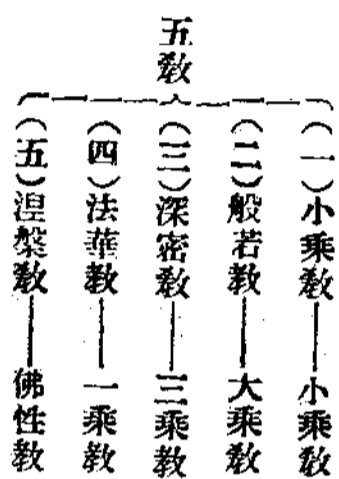 五教
(一)小乘教——小乘教
(二)般若教——大乘教
(三)深密教——三乘教
(四)法華教——一乘教
(五)涅槃教——佛性教